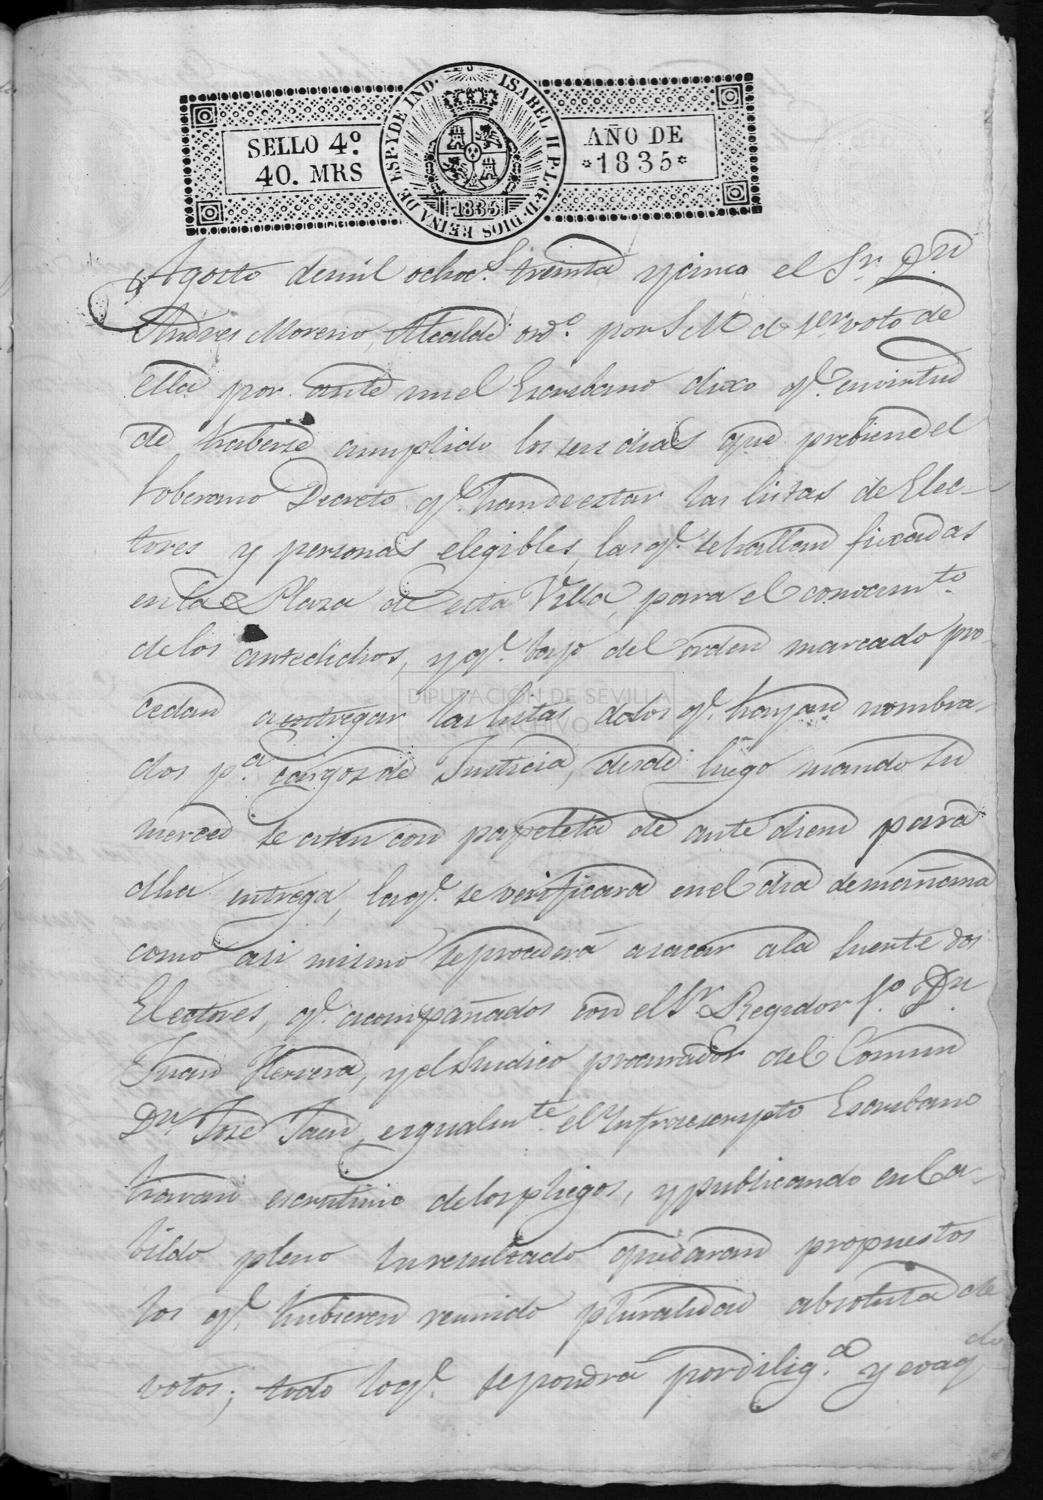 SELLO 4º
40. MRS
ISABEL II P. L. G. D. DIOS REINA DE ESP. Y DE IND.
1835
AÑO DE
*1835*
Agosto demil ochocs. treinta ycinco el Sr. Dn
Andres Moreno, Alcalde ordo. por S M de 1er voto de
ella por ante miel Escribano dixo qe. envirtud
de haberse cumplido los seis dias que prebiene el
Soberano Decreto qe. han de estar las listas de Elec-
tores y personas elegibles, las qe. se hallan fixadas
en la Plaza de esta Villa, para el conocimto.
de los antedichos, y qe. bajo del orden marcado pro-
cedan a entregar las listas de los qe. hayan nombra-
dos pa. cargos de Justicia, desde luego mando su
merced se citen con papeleta de ante diem para
dha entrega, la qe. se verificará en el dia de mañana
como asi mismo se procederá a sacar a la suerte dos
Electores, qe. acompañados con el Sr. Regidor 1º. Dn.
Juan Herrera, y el Sindico procurador del Comun
Dn. José Jaen, e igualmte. el Infraescripto Escribano
haran escrutinio de los pliegos, y publicando en Ca-
bildo pleno su resultado quedaran propuestos
los qe. hubieren reunido pluralidad absoluta de
votos; todo lo qe. se pondrá por diliga. y evaqdo
DIPUTACIÓN DE SEVILLA
ARCHIVO